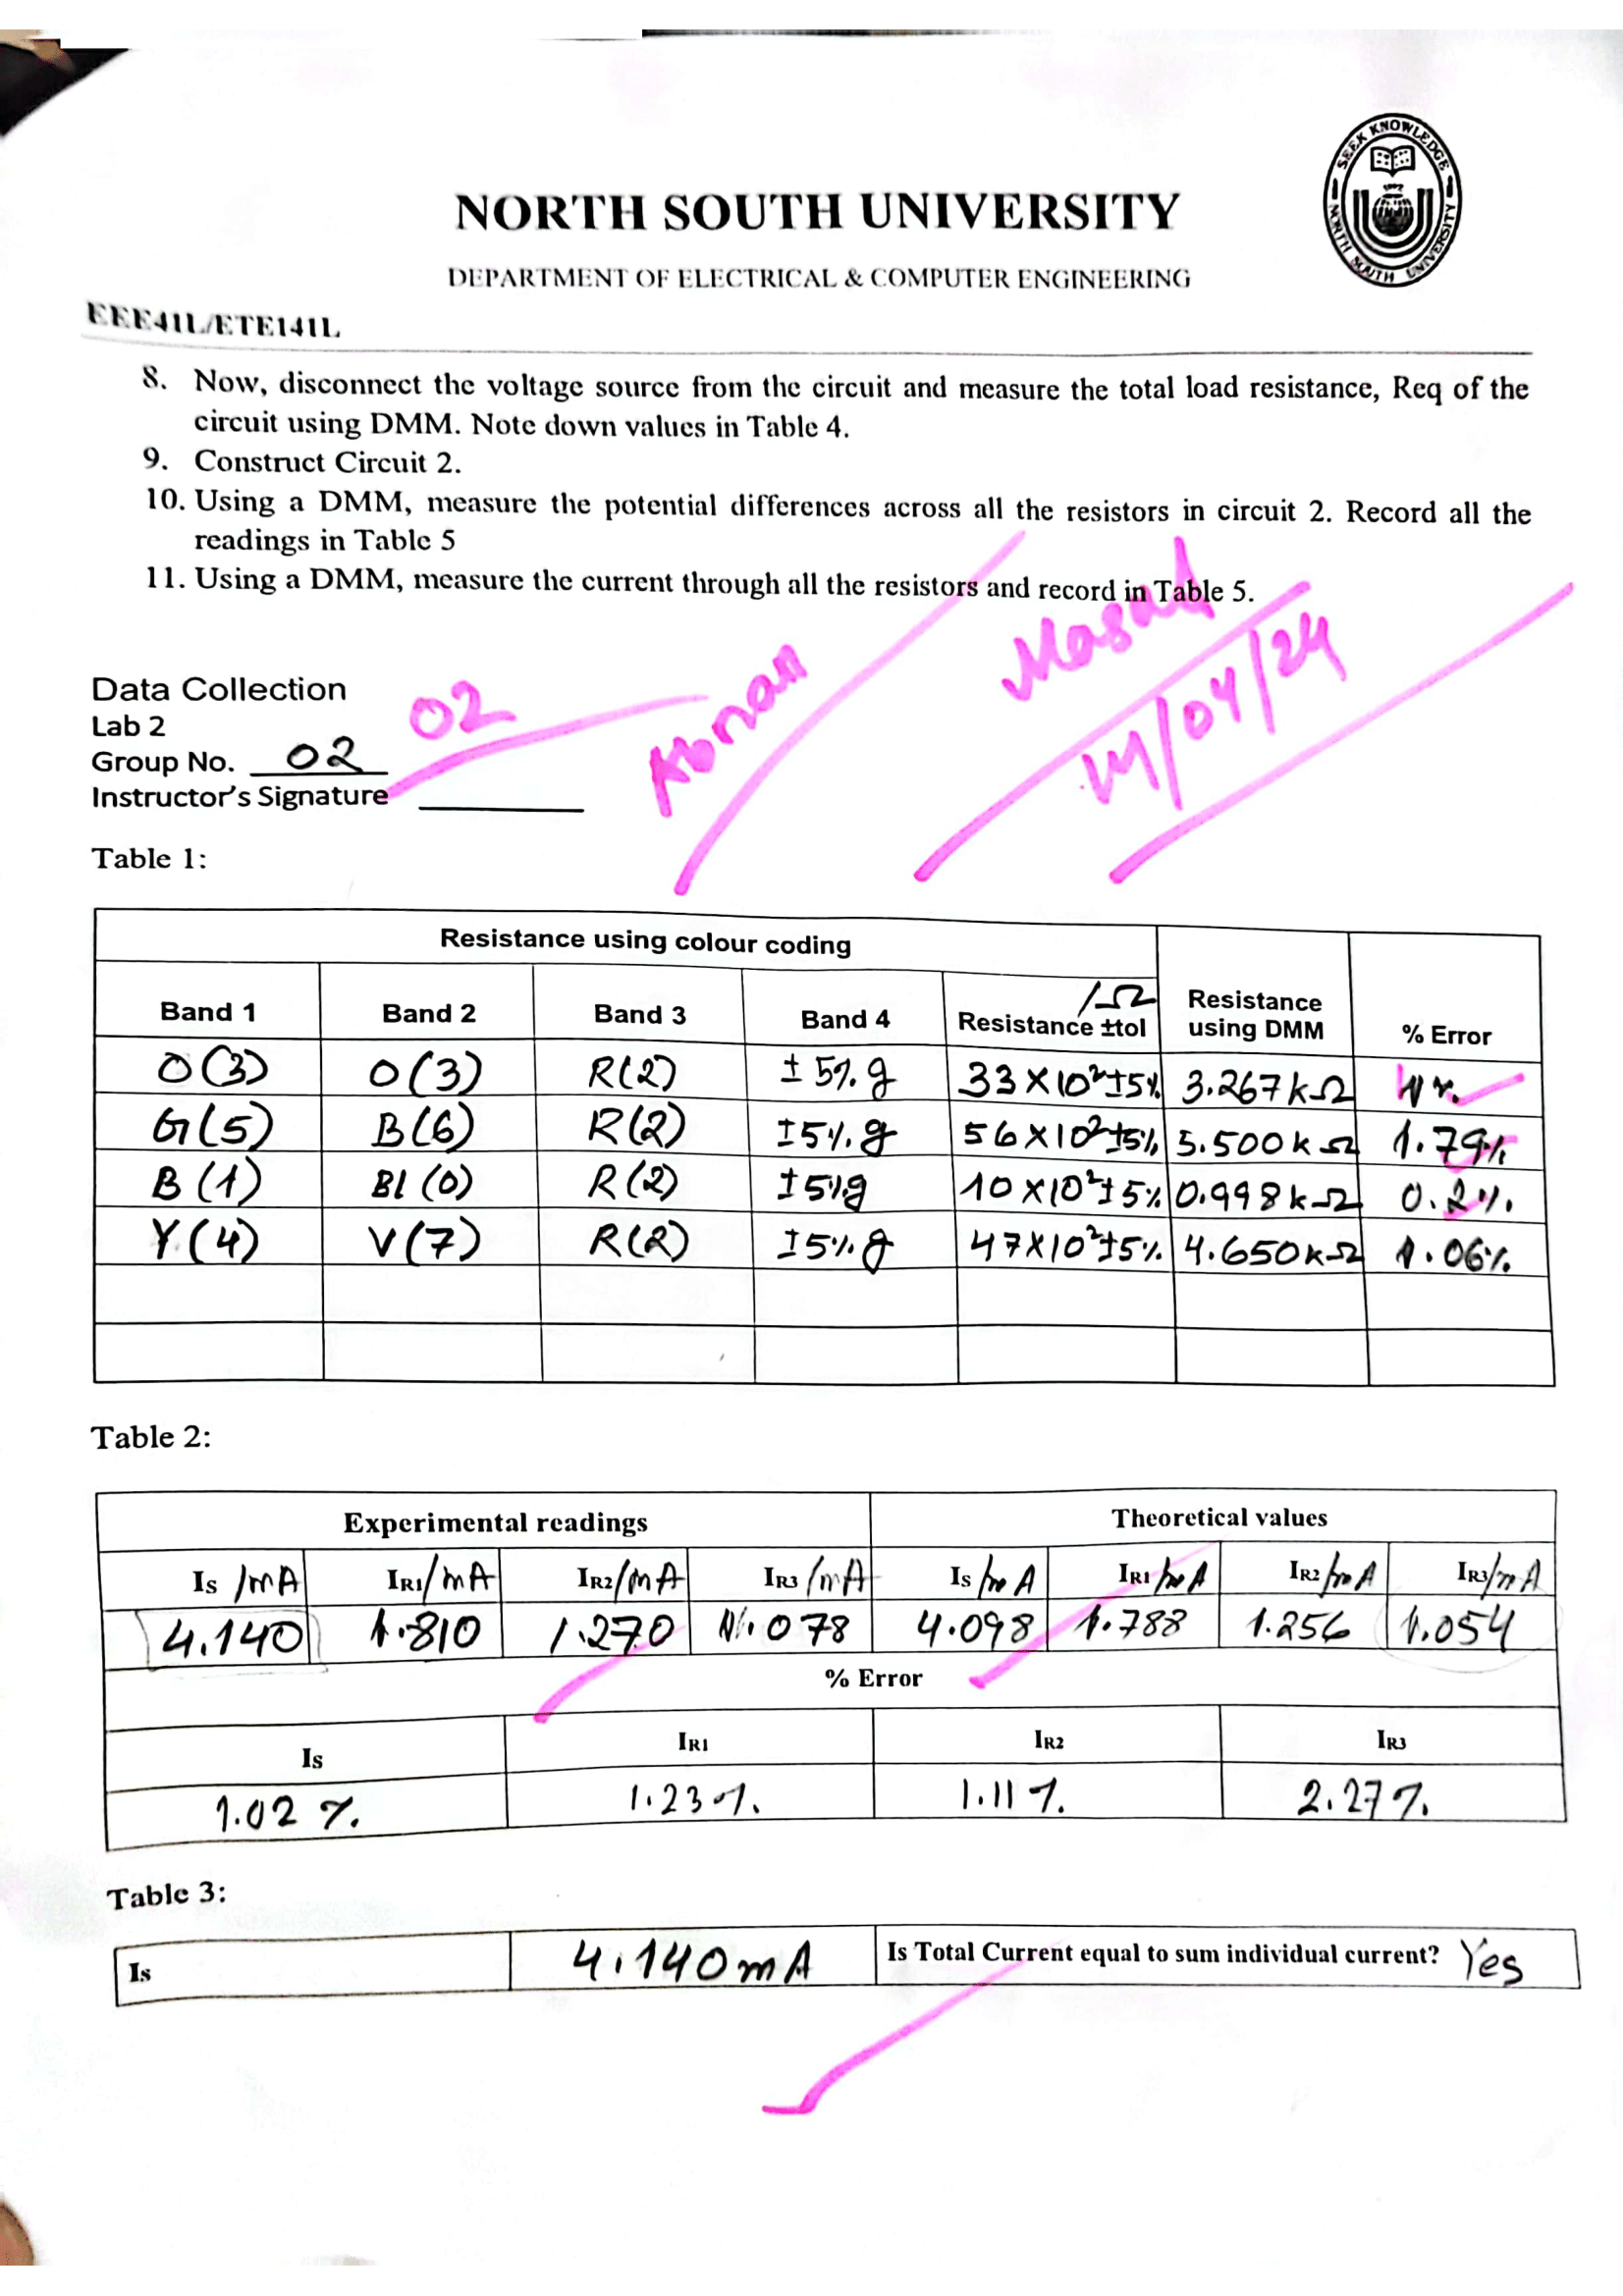 SEEK KNOWLEDGE
1992
NORTH SOUTH UNIVERSITY
NORTH SOUTH UNIVERSITY
DEPARTMENT OF ELECTRICAL & COMPUTER ENGINEERING
EEE41L/ETE141L
8. Now, disconnect the voltage source from the circuit and measure the total load resistance, Req of the
circuit using DMM. Note down values in Table 4.
9. Construct Circuit 2.
10. Using a DMM, measure the potential differences across all the resistors in circuit 2. Record all the
readings in Table 5
11. Using a DMM, measure the current through all the resistors and record in Table 5.
Masud
14/04/24
Adnan
02
Data Collection
Lab 2
Group No. 02
Instructor's Signature
Table 1:
Resistance using colour coding
Band 1 Band 2 Band 3 Band 4 Resistance ±tol /Ω Resistance using DMM % Error
O(3) O(3) R(2) ±5% g 33×10²±5% 3.267kΩ
G(5) B(6) R(2) ±5% g 56×10²±5% 5.500kΩ 1.79%
B(1) Bl(0) R(2) ±5%g 10×10²±5% 0.998kΩ 0.2%
Y(4) V(7) R(2) ±5% g 47×10²±5% 4.650kΩ 1.06%
Table 2:
Experimental readings Theoretical values
Is /mA IR1/mA IR2/mA IR3/mA Is/mA IR1/mA IR2/mA IR3/mA
4.140 1.810 1.270 1.078 4.098 1.788 1.256 1.054
% Error
Is IR1 IR2 IR3
1.02 % 1.23 % 1.11 % 2.27 %
Table 3:
Is 4.140mA Is Total Current equal to sum individual current? Yes